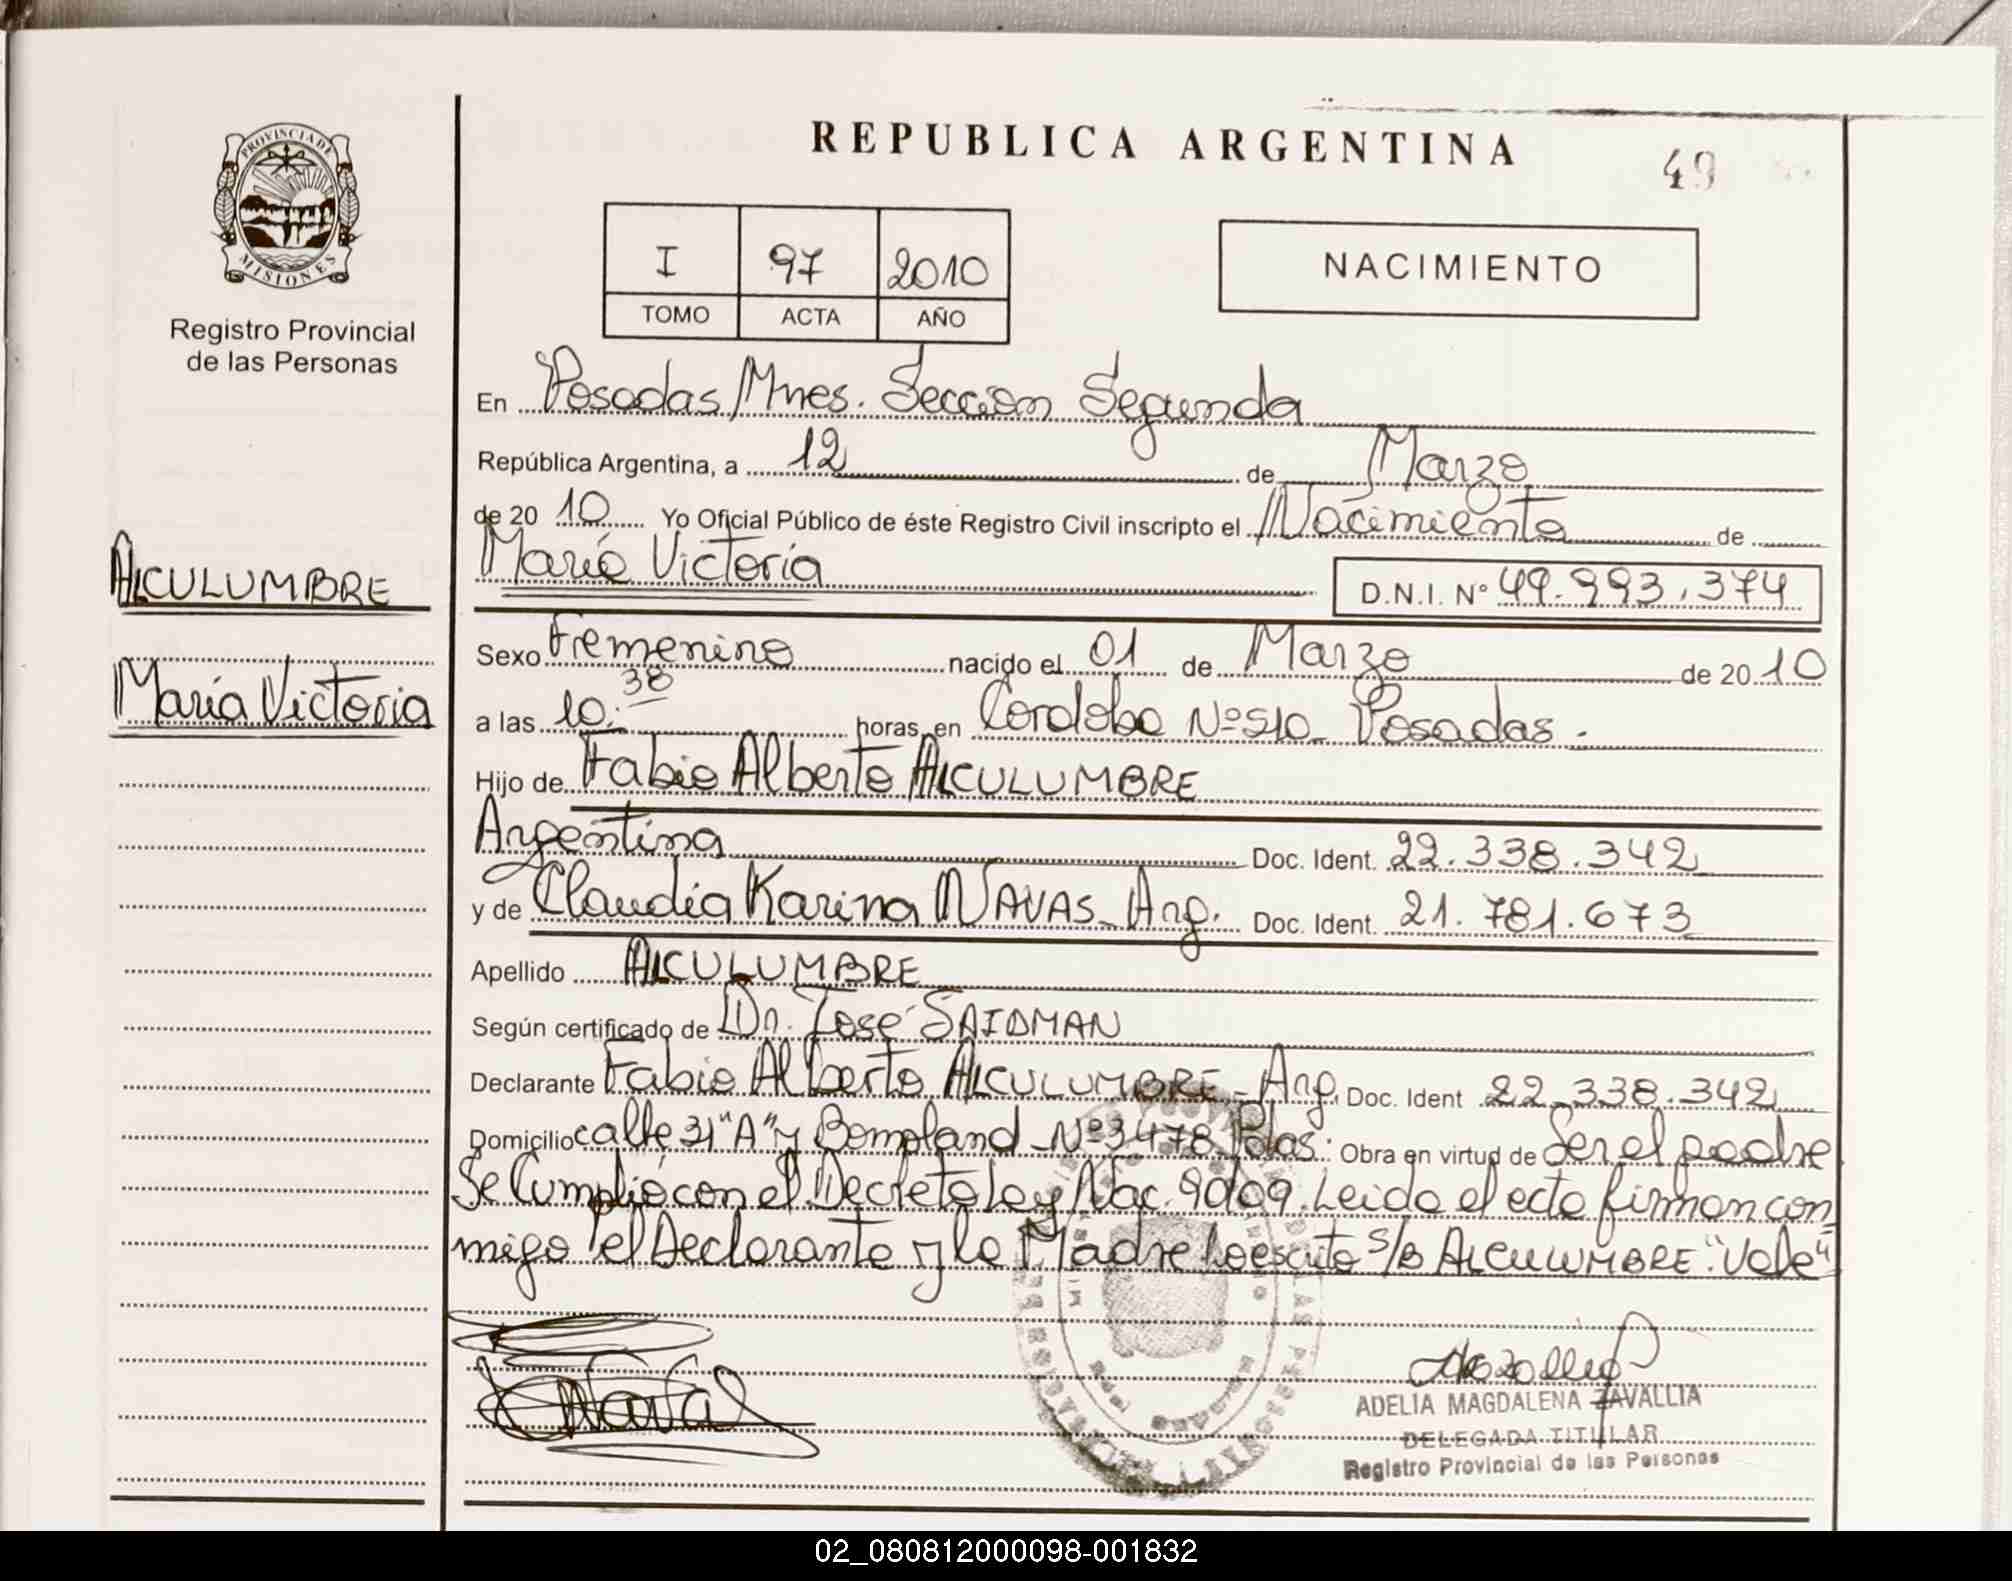 REPUBLICA ARGENTINA
49
PROVINCIA DE
MISIONES
Registro Provincial
de las Personas
I 97 2010
TOMO ACTA AÑO
NACIMIENTO
En Posadas Mnes. Seccion Segunda
República Argentina, a 12 de Marzo
de 20 10 Yo Oficial Público de éste Registro Civil inscripto el Nacimiento de
María Victoria D.N.I. N° 49.993.374
ALCULUMBRE
María Victoria
Sexo Femenino nacido el 01 de Marzo de 20 10
a las 10:38 horas, en Cordoba Nº 510 Posadas.
Hijo de Fabio Alberto ALCULUMBRE
Argentina Doc. Ident. 22.338.342
y de Claudia Karina NAVAS - Arg. Doc. Ident. 21.781.673
Apellido ALCULUMBRE
Según certificado de Dr. José SAIDMAN
Declarante Fabio Alberto ALCULUMBRE - Arg. Doc. Ident 22.338.342
Domicilio calle 31 "A" y Bompland Nº 3478 Pdas. Obra en virtud de Ser el padre
Se Cumplió con el Decreto Ley Nac. 9009. Leida el acta firman con-
migo el Declarante y la Madre lo escrito S/B ALCULUMBRE "Vale"
Navas
ADELIA MAGDALENA ZAVALLIA
DELEGADA TITULAR
Registro Provincial de las Personas
02_080812000098-001832